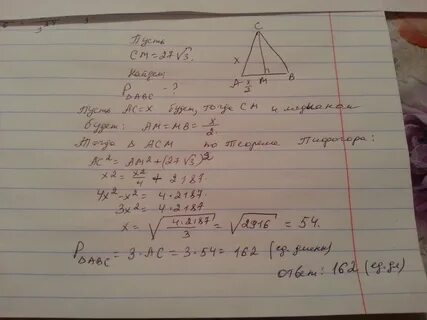 Пусть
CM = 27√3.
Найдем
P△ABC - ?
C
x
A x/2 M B
Пусть AC = x будет, тогда CM и медианой
будет: AM = MB = x/2
Тогда △ ACM по теореме Пифагора:
AC² = AM² + (27√3)²
x² = x²/4 + 2187
4x² - x² = 4·2187
3x² = 4·2187
x = √(4·2187/3) = √2916 = 54.
P△ABC = 3·AC = 3·54 = 162 (ед. длины)
ответ: 162 (ед. дл)